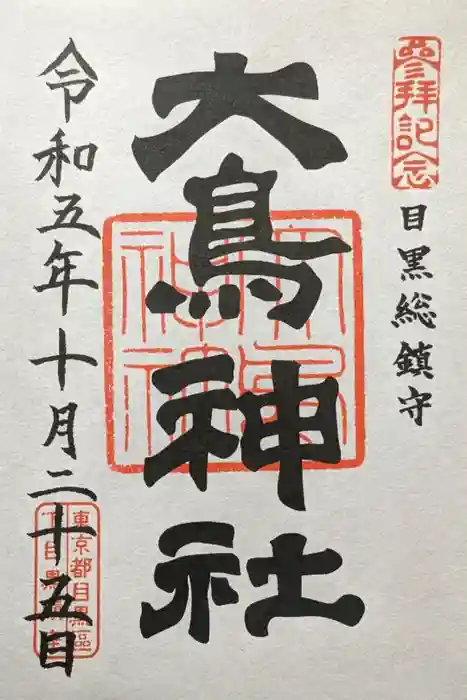 參拜記念
目黒総鎮守
大鳥神社
令和五年十月二十五日
東京都目黒區